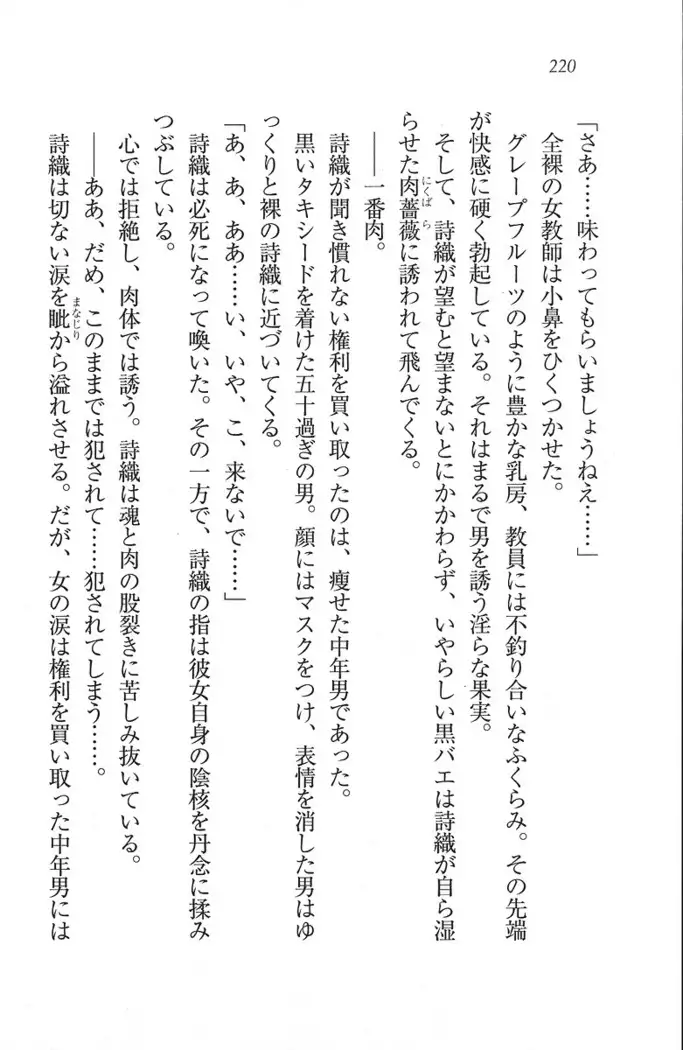 220
「さあ……味わってもらいましょうねえ……」
全裸の女教師は小鼻をひくつかせた。
グレープフルーツのように豊かな乳房、教員には不釣り合いなふくらみ。その先端
が快感に硬く勃起している。それはまるで男を誘う淫らな果実。
そして、詩織が望むと望まないとにかかわらず、いやらしい黒バエは詩織が自ら湿
らせた肉薔薇(にくばら)に誘われて飛んでくる。
――一番肉。
詩織が聞き慣れない権利を買い取ったのは、痩せた中年男であった。
黒いタキシードを着けた五十過ぎの男。顔にはマスクをつけ、表情を消した男はゆ
っくりと裸の詩織に近づいてくる。
「あ、あ、ああ……い、いや、こ、来ないで……」
詩織は必死になって喚いた。その一方で、詩織の指は彼女自身の陰核を丹念に揉み
つぶしている。
心では拒絶し、肉体では誘う。詩織は魂と肉の股裂きに苦しみ抜いている。
――ああ、だめ、このままでは犯されて……犯されてしまう……。
詩織は切ない涙を眦(まなじり)から溢れさせる。だが、女の涙は権利を買い取った中年男には